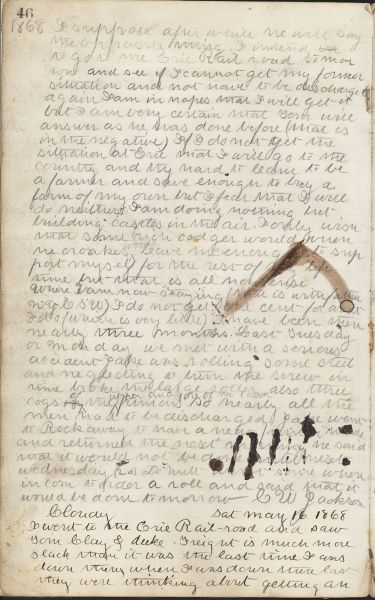 46
1868 I suppose after while he will say
the opposite thing. I intend
to go to the Erie Rail road to mor
row and see if I cannot get my former
situation and not have to be discharged
again I am in hopes that I will get it
but I am very certain that Tom will
answer as he has done before (that is
in the negative) If I do not get the
situation at Erie that I will go to the
country and try hard to learn to be
a farmer and save enough to buy a
farm of my own but I fear that I will
do neither I am doing nothing but
building castles in the air. I only wish
that some high codger would when
he croaks leave me enough to sup
port myself for the rest of my life
time but that is all nonsense
Where I am now staying that is with
I do not get cent for
I do (which is very little) I have been there
nearly three months. Last Tuesday
or Monday we met with a serious
accident Jake was rolling some steel
and neglecting to turn the screw in
time broke the large roller also three
cogs of upper and of the lower
the pinions so nearly all the
men had to be discharged Jake went
to Rockaway to have a new
and returned the next he said
that it would not be done
wednesday when
in com to order a roll and said that it
would be done tomorrow C W Jackson
Cloudy Sat May 16 1868
I went to the Erie Rail-road and saw
Tom Clay & duke. Freight is much more
slack than it was the last time I was
down there when I was down there last
they were thinking about getting an